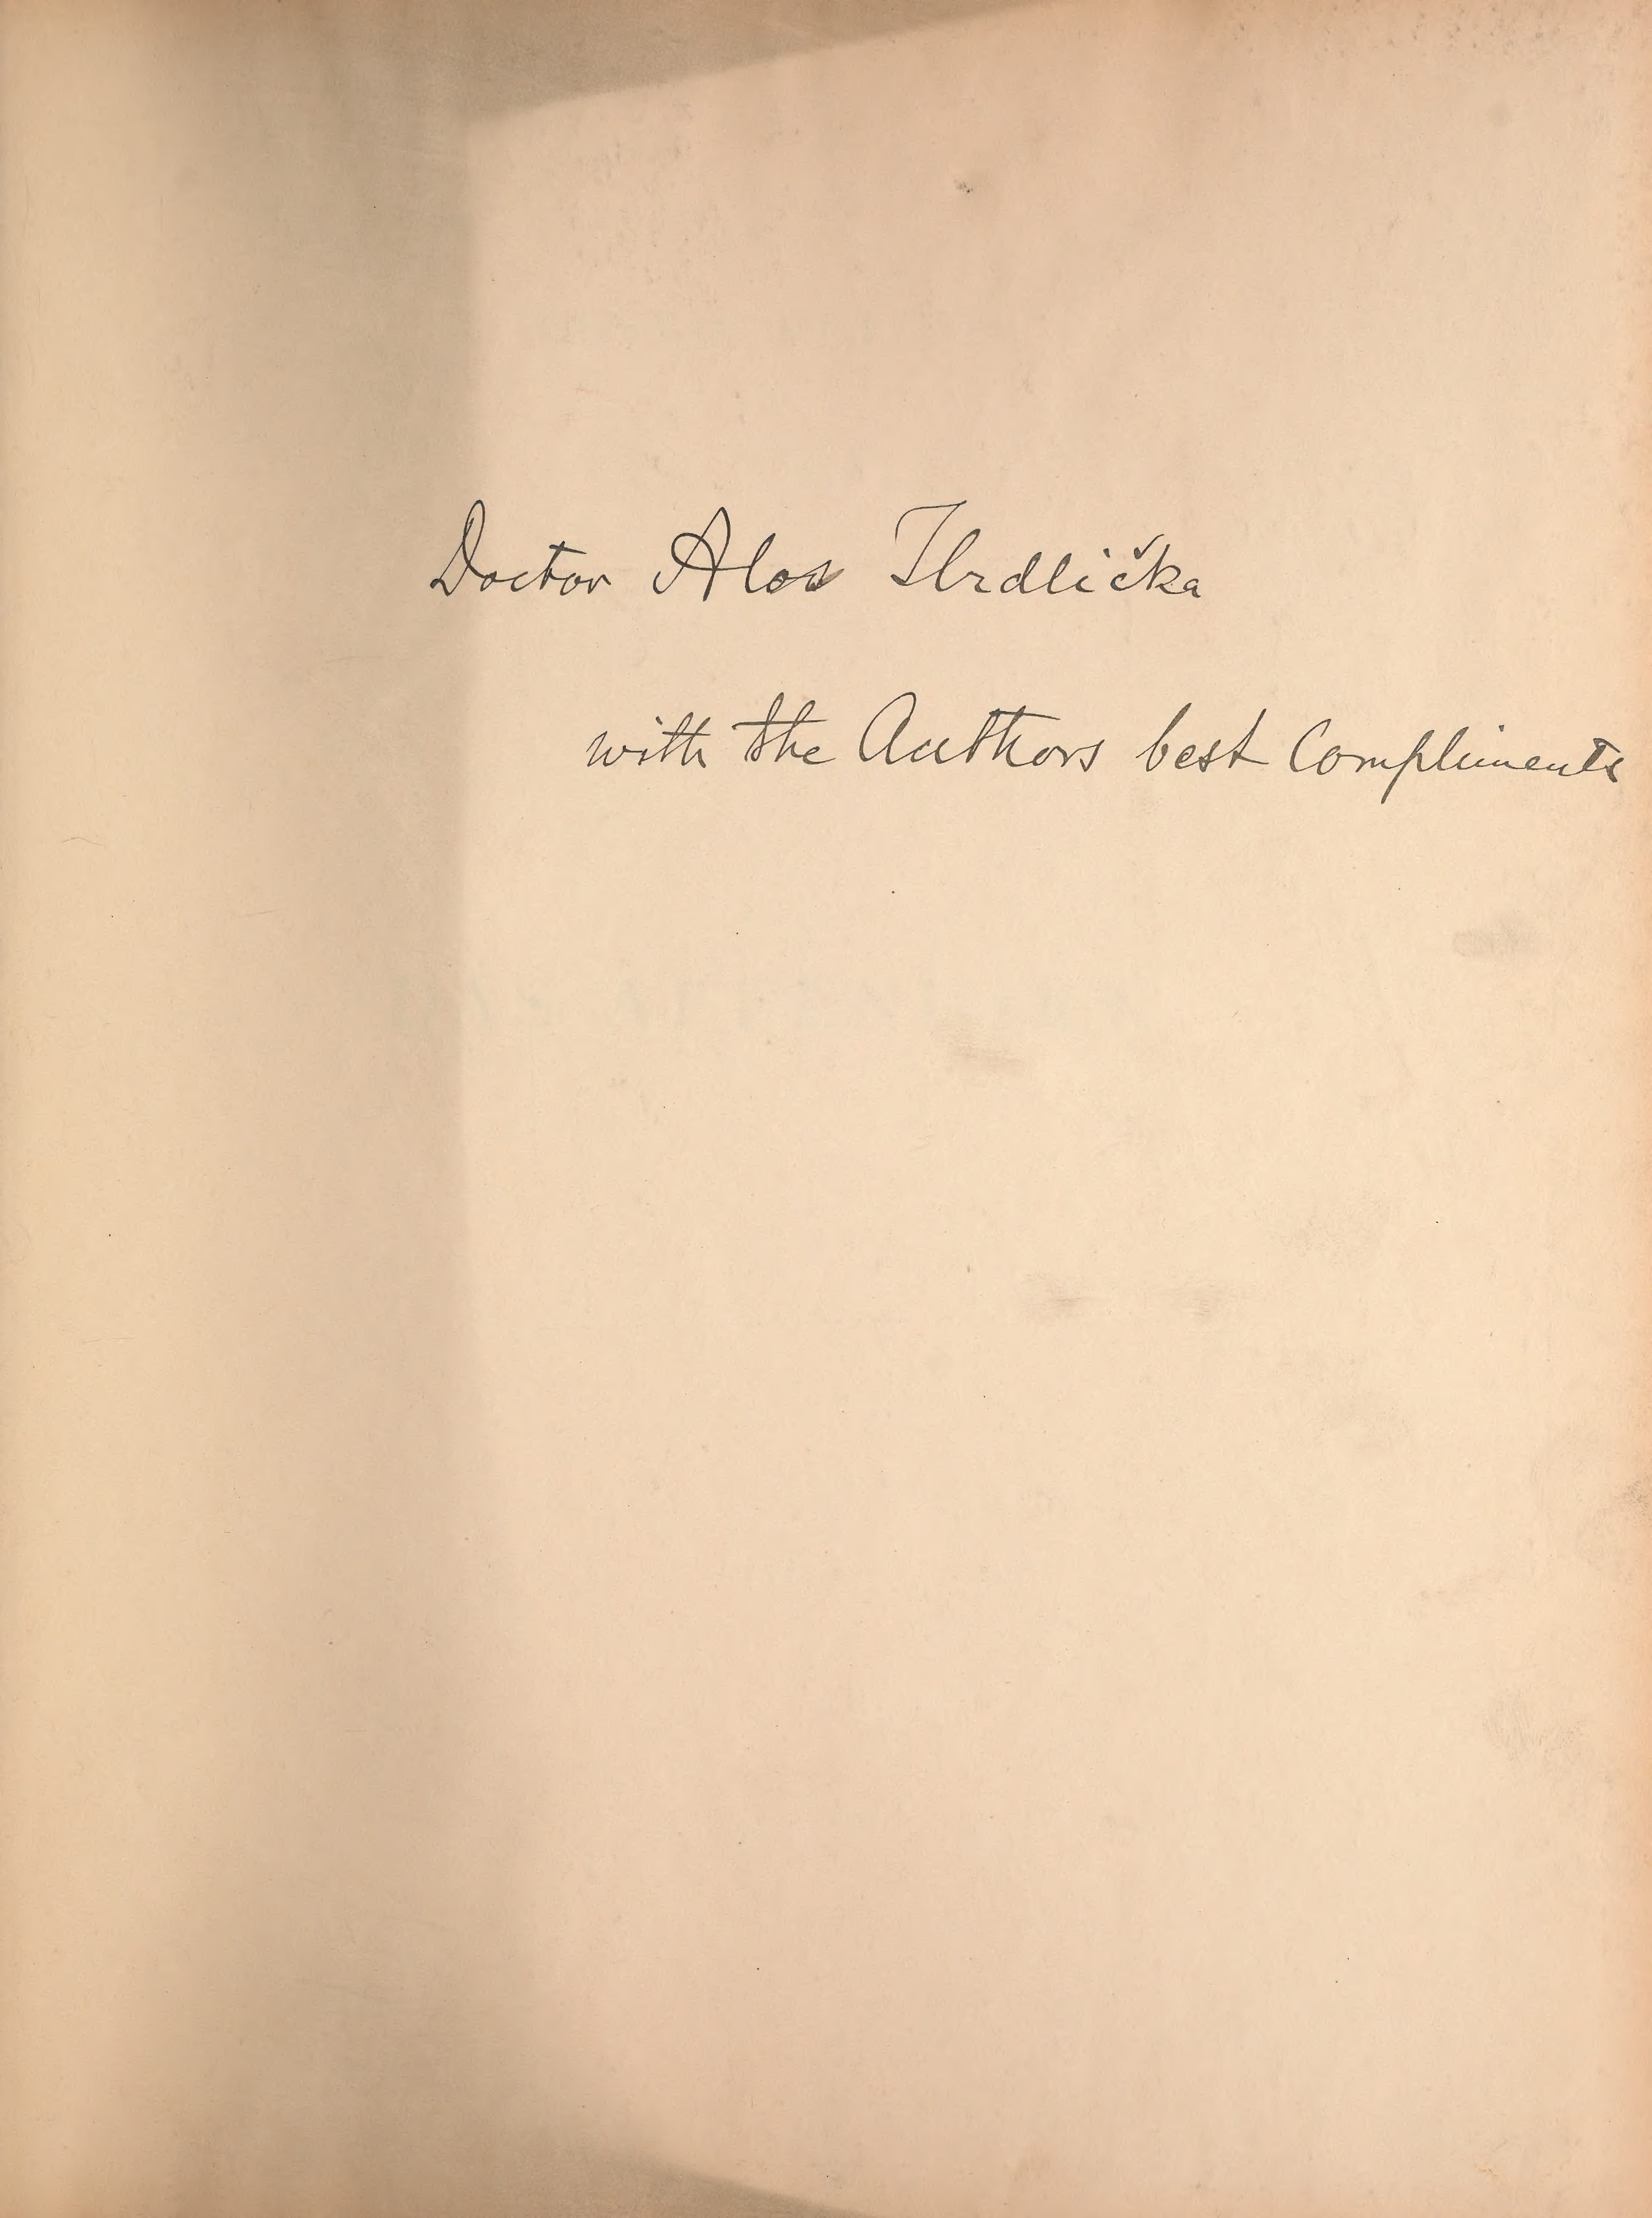 Doctor Alos Hrdlička
with the Authors best Compliments